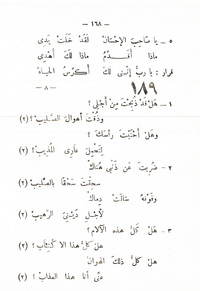 - ١٦٨ -
٥ - يا صاحب الإحسان لقد خلت يدي
ماذا أقدم ماذا لك أهدي
قرار : يا رب إنني لك أكرس الحياة
- ٨ -
١٨٩
١ - هل قد ذبحت من أجلي ؟
وذقت أهوال الصليب ؟ (٢)
وهل أحنيت رأسك ؟
لتحمل عاري المذيب ؟ (٢)
٢ - ضربت عن ذنبي هناك
سحقت سحقا بالصليب (٢)
وفوقه سالت دماك
لأجل ديني الرهيب (٢)
٣ - هل كل هذه الآلام ؟
هل كل هذا الاكتئاب ؟ (٢)
هل كل ذلك الهوان
عني أنا هذا العذاب ؟ (٢)